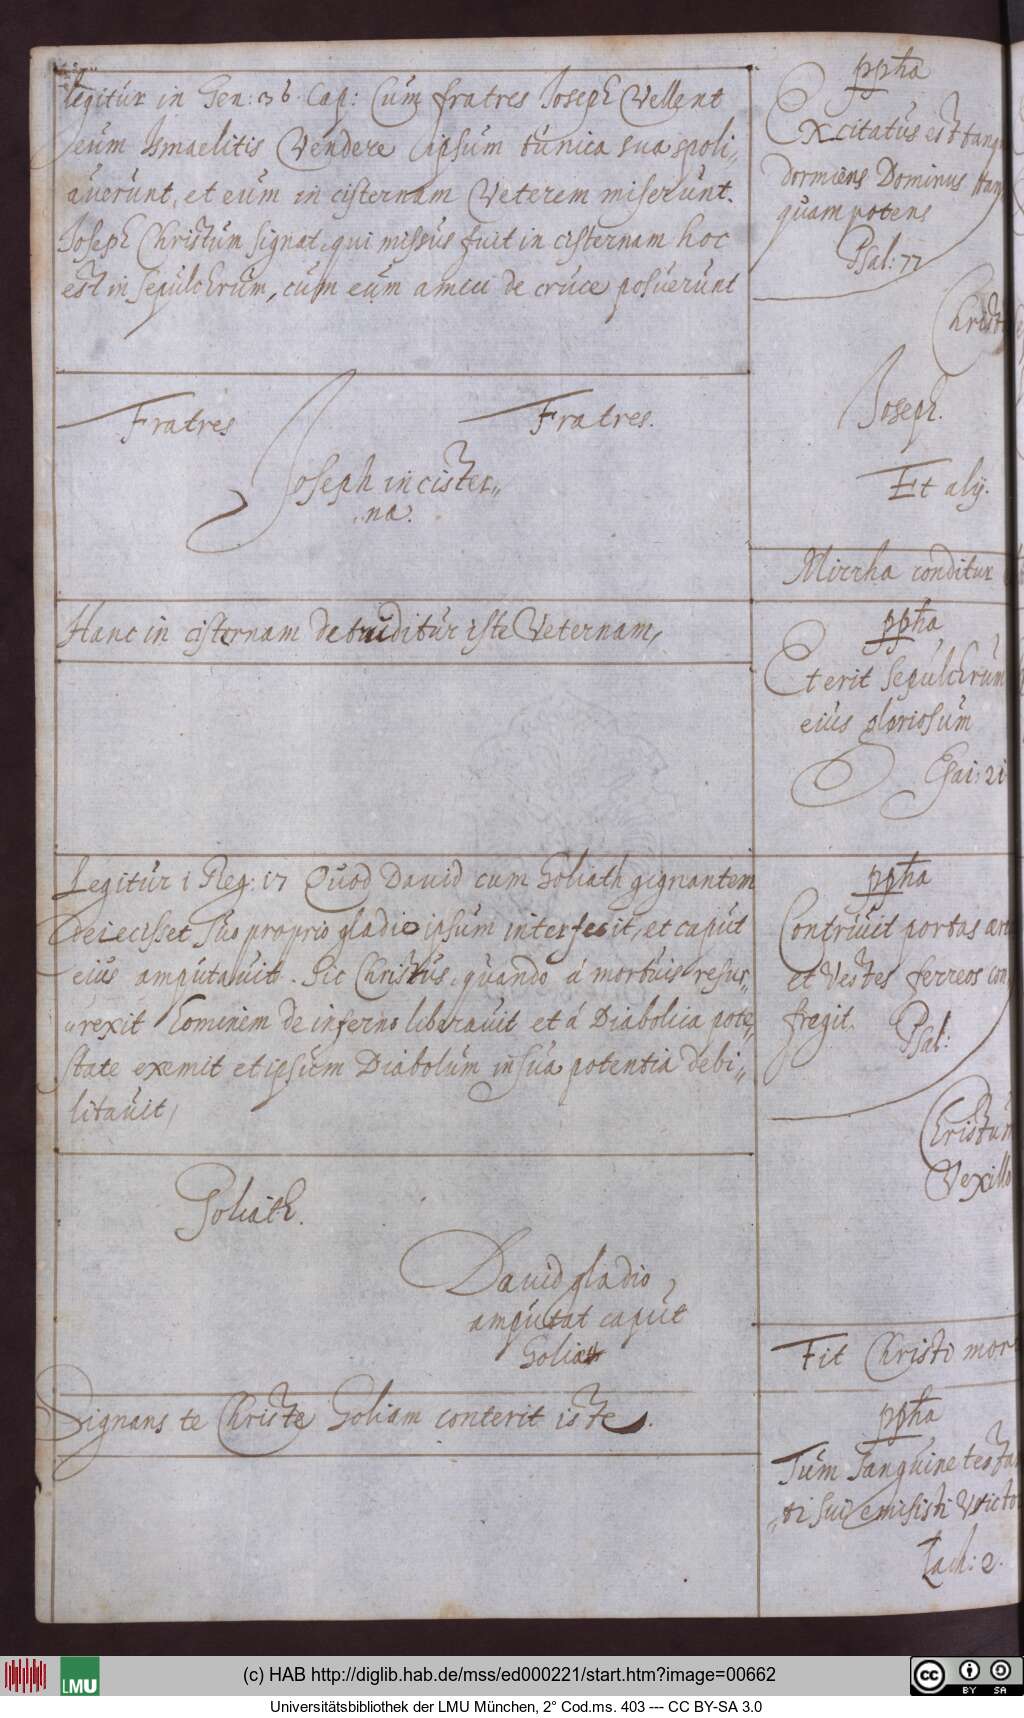 Legitur in Gen: 36. Cap: Cum fratres Joseph Vellent
eum Ismaelitis Vendere ipsum tunica sua spoli„
auerunt, et eum in cisternam Veterem miserunt.
Joseph Christum signat, qui missus fuit in cisternam hoc
est in sepulchrum, cum eum amici de cruce posuerunt
Fratres
Fratres.
Joseph in cister„
„na.
Hanc in cisternam detruditur iste Veternam,
Legitur i Reg: 17 Quod Dauid cum Goliath gignantem
deiecisset suo proprio gladio ipsum interfecit, et caput
eius amputauit. Sic Christus, quando á mortuis resur„
„rexit hominem de inferno liberauit et á Diabolica pote„
state exemit et ipsum Diabolum in sua potentia debi„
litauit,
Goliath.
Dauid gladio
amputat caput
Signans te Christe Goliam conterit iste.
ppha
Excitatus est tanqu
dormiens Dominus tan
quam potens
Psal: 77
Joseph.
Et alij.
Mirrha conditur
ppha
Et erit sepulchrum
eius gloriosum
Esai: 21
ppha
Contriuit portas
et Vestes ferreos con
fregit.
Psal:
Christum
Vexillo
Fit Christi mor
ppha
Tum sanguine testa
„ti sui emisisti
Zach: 2.
LMU
(c) HAB http://diglib.hab.de/mss/ed000221/start.htm?image=00662
cc BY SA
Universitätsbibliothek der LMU München, 2° Cod.ms. 403 --- CC BY-SA 3.0